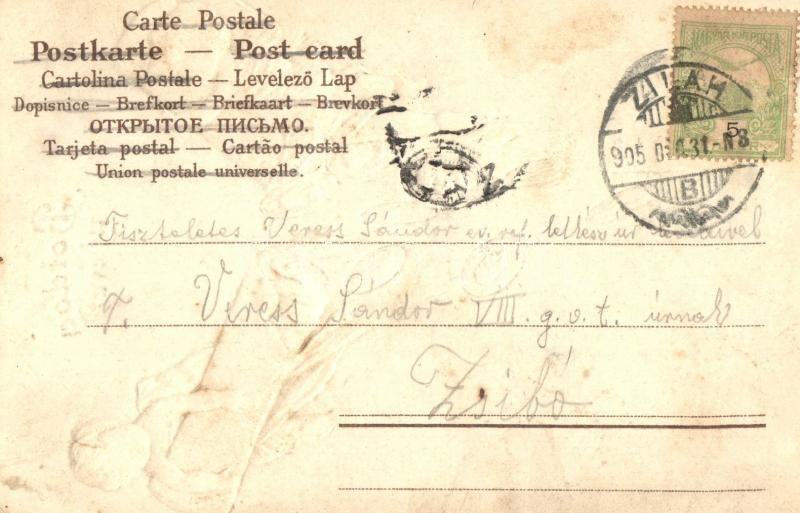 Carte Postale
Postkarte — Post card
Cartolina Postale — Levelező Lap
Dopisnice — Brefkort — Briefkaart — Brevkort
ОТКРЫТОЕ ПИСЬМО.
Tarjeta postal — Cartão postal
Union postale universelle.
MAGYAR KIR. POSTA
5
ZILAH
905 31
B
Tiszteletes Veress Sándor ev. ref. lelkész úr
T. Veress Sándor VIII. g. o. t. úrnak
Zsibó